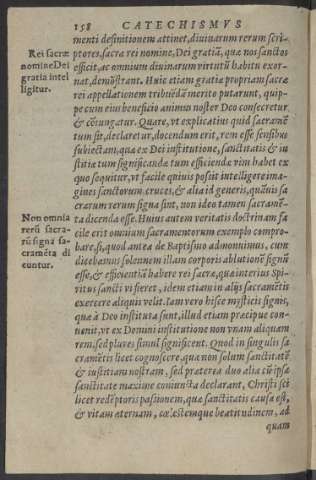 158 CATECHISMVS
menti definitionem attinet, diuinarum rerum scri-
ptores, sacræ rei nomine, Dei gratiã, quæ nos sanctos
efficit, ac omnium diuinarum virtutũ habitu exor-
nat, demõstrant. Huic etiam gratiæ propriam sacræ
rei appellationem tribuẽdã merito putarunt, quip-
pe cum eius beneficio animus noster Deo consecretur
& cõiungatur. Quare, vt explicatius quid sacramẽ
tum sit, declaretur, docendum erit, rem esse sensibus
subiectam, quæ ex Dei institutione, sanctitatis & iu
stitiæ tum significandæ tum efficiendæ vim habet ex
quo sequitur, vt facile quiuis possit intelligere ima-
gines sanctorum, cruces, & alia id generis, quãuis sa
crarum rerum signa sint, non ideo tamen sacramẽ-
ta dicenda esse. Huius autem veritatis doctrinam fa
cile erit omnium sacramentorum exemplo compro-
bare, si, quod antea de Baptismo admonuimus, cum
dicebamus solennem illam corporis ablutionẽ signũ
esse, & efficientiã habere rei sacræ, quæ interius Spi-
ritus sancti vi fieret, idem etiam in alijs sacramẽtis
exercere aliquis velit. Iam vero hisce mysticis signis,
quæ à Deo instituta sunt, illud etiam præcipue con-
uenit, vt ex Domini institutione non vnam aliquam
rem, sed plures simul significent. Quod in singulis sa
cramẽtis licet cognoscere, quæ non solum sanctitatẽ
& iustitiam nostram, sed præterea duo alia cũ ipsa
sanctitate maxime coniuncta declarant, Christi sci
licet redẽptoris passionem, quæ sanctitatis causa est,
& vitam æternam, cœlestemque beatitudinem, ad
quam
Rei sacræ
nomine Dei
gratia intel
ligitur.
Non omnia
rerũ sacra-
rũ signa sa-
cramẽta di
cuntur.